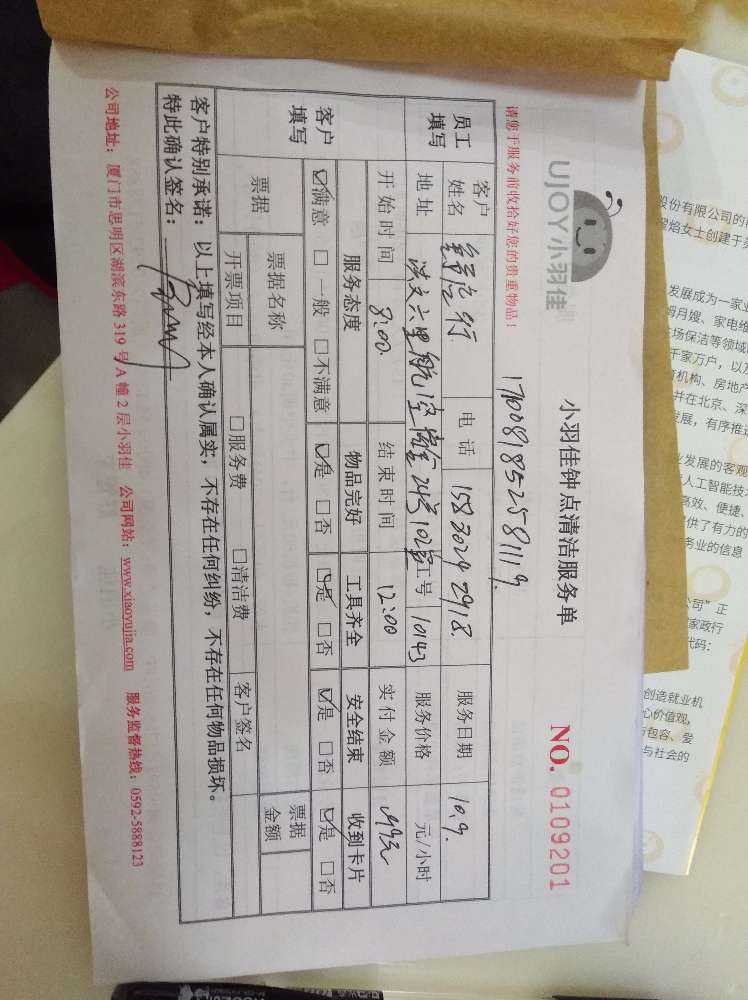 UJOY小羽佳
小羽佳钟点清洁服务单
NO. 0109201
请您于服务前收拾好您的贵重物品！
176081852581119.
员工填写
客户姓名
电话 158 2024 2918.
服务日期 10.9.
地址
24号102室
工号 10143
服务价格 元/小时
开始时间 8:00
结束时间 12:00
实付金额
客户填写
服务态度 物品完好 工具齐全 安全结束 收到卡片
☑满意 □一般 □不满意 ☑是 □否 ☑是 □否 ☑是 □否 ☑是 □否
票据
票据名称
票据金额
开票项目 □服务费 □清洁费 客户签名
客户特别承诺：以上填写经本人确认属实，不存在任何纠纷，不存在任何物品损坏。
特此确认签名：
公司地址：厦门市思明区湖滨东路 319 号 A 幢 2 层小羽佳 公司网站：www.xiaoyujia.com 服务监督热线：0592-5888123
股份有限公司的
焰女士创建于
发展成为一家业
月嫂、家电维
场保洁等领域
千家万户，以
机构、房地产
并在北京、深
发展，有序推
业发展的客观
人工智能技
高效、便捷、
供了有力的
务业的信息
公司”正
家政行
代码：
创造就业机
心价值观，
包容、爱
与社会的